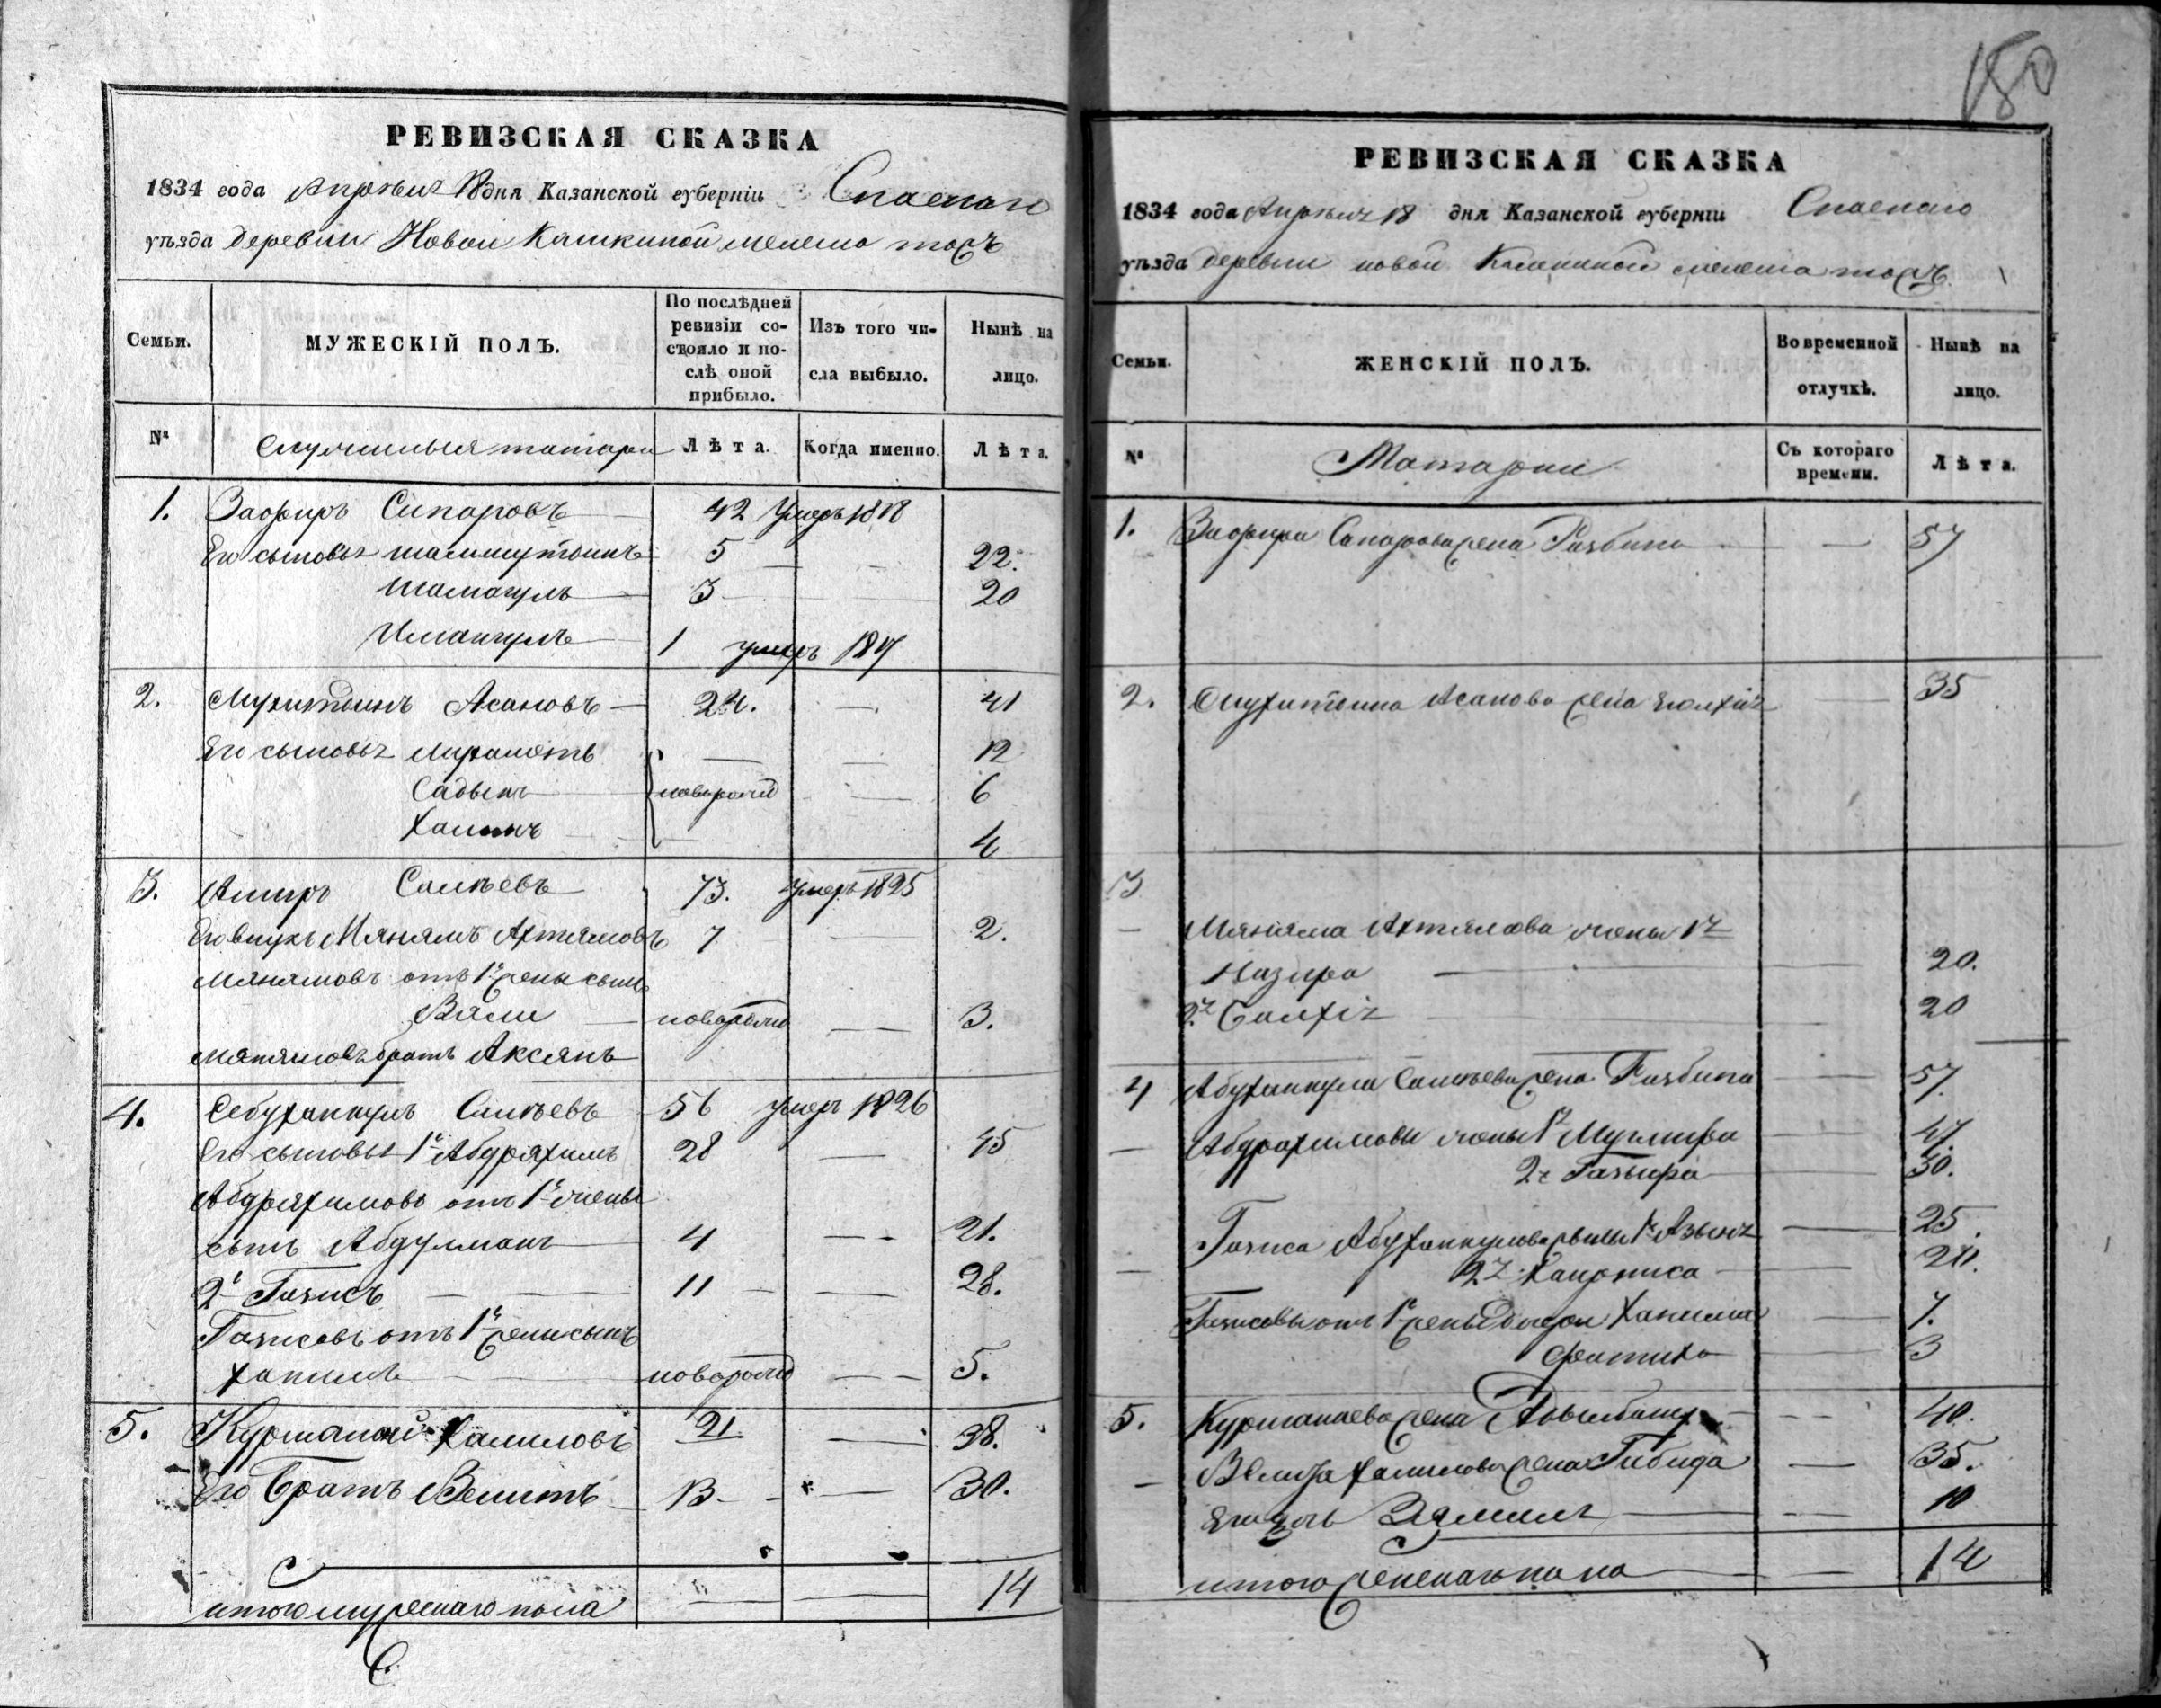 180
РЕВИЗСКАЯ СКАЗКА
1834 года Апреля 18 дня Казанской губерніи Спаскаго
уѣзда деревни Новой Камкиной
Семьи. МУЖЕСКІЙ ПОЛЪ. По послѣдней ревизіи состояло и послѣ оной прибыло. Изъ того числа выбыло. Нынѣ на лицо.
№ служилыя татары Лѣта. Когда именно. Лѣта.
1. Зафиръ Сапаровъ 42 умеръ 1818
Его сыновья 5 22.
Шамагулъ 3 20
Имангулъ 1 умеръ
2. Мухитдинъ Асановъ 24. 41
Его сыновья Мухаметь 12
Садыкъ новорожд 6
Халинъ 4
3. Амиръ Салкѣевъ 73. умеръ 1825
Его внукъ Мянямъ Ахтямовъ 7 2.
Мянямовъ отъ 1й жены сынъ
Вяли новорожд 3.
Мянямовъ братъ Аксянъ
4. Себуханкулъ Салкѣевъ 56 умеръ 1826
Его сыновья 1й Абдряхимъ 28 45
Абдряхимовъ отъ 1й жены
сынъ Абдулманъ 4 21.
2й Газисъ 11 28.
Газисовъ отъ 1й жены сынъ
Хакимъ новорожд 5.
5. Курманай Халиловъ 21 38.
Его братъ Велитъ 13 30.
итого мужескаго пола 14
РЕВИЗСКАЯ СКАЗКА
1834 года Апреля 18 дня Казанской губерніи Спаскаго
уѣзда деревни новой Камкиной
Семьи. ЖЕНСКІЙ ПОЛЪ. Во временной отлучкѣ. Нынѣ на лицо.
№ Татарки Съ котораго времени. Лѣта.
1. Зафира Сапарова жена Рабига 57
2. Мухитдина Асанова жена 35
3
Мяняма Ахтямова жены 1я
Назира 20.
2я Салхія 20
4 Абуханкула Салкѣева жена 57.
Абдрахимовы жены 1я 47.
2я Газыра 30.
Газиса Абуханкулова жены 1я 25.
2я
Газисовы отъ 1й жены дочери Хакима 7.
Фатиха 3
5. Курманаева жена 40.
Велита Халилова жена Гибида 35.
Его дочь Зямиля 10
итого женскаго пола 14